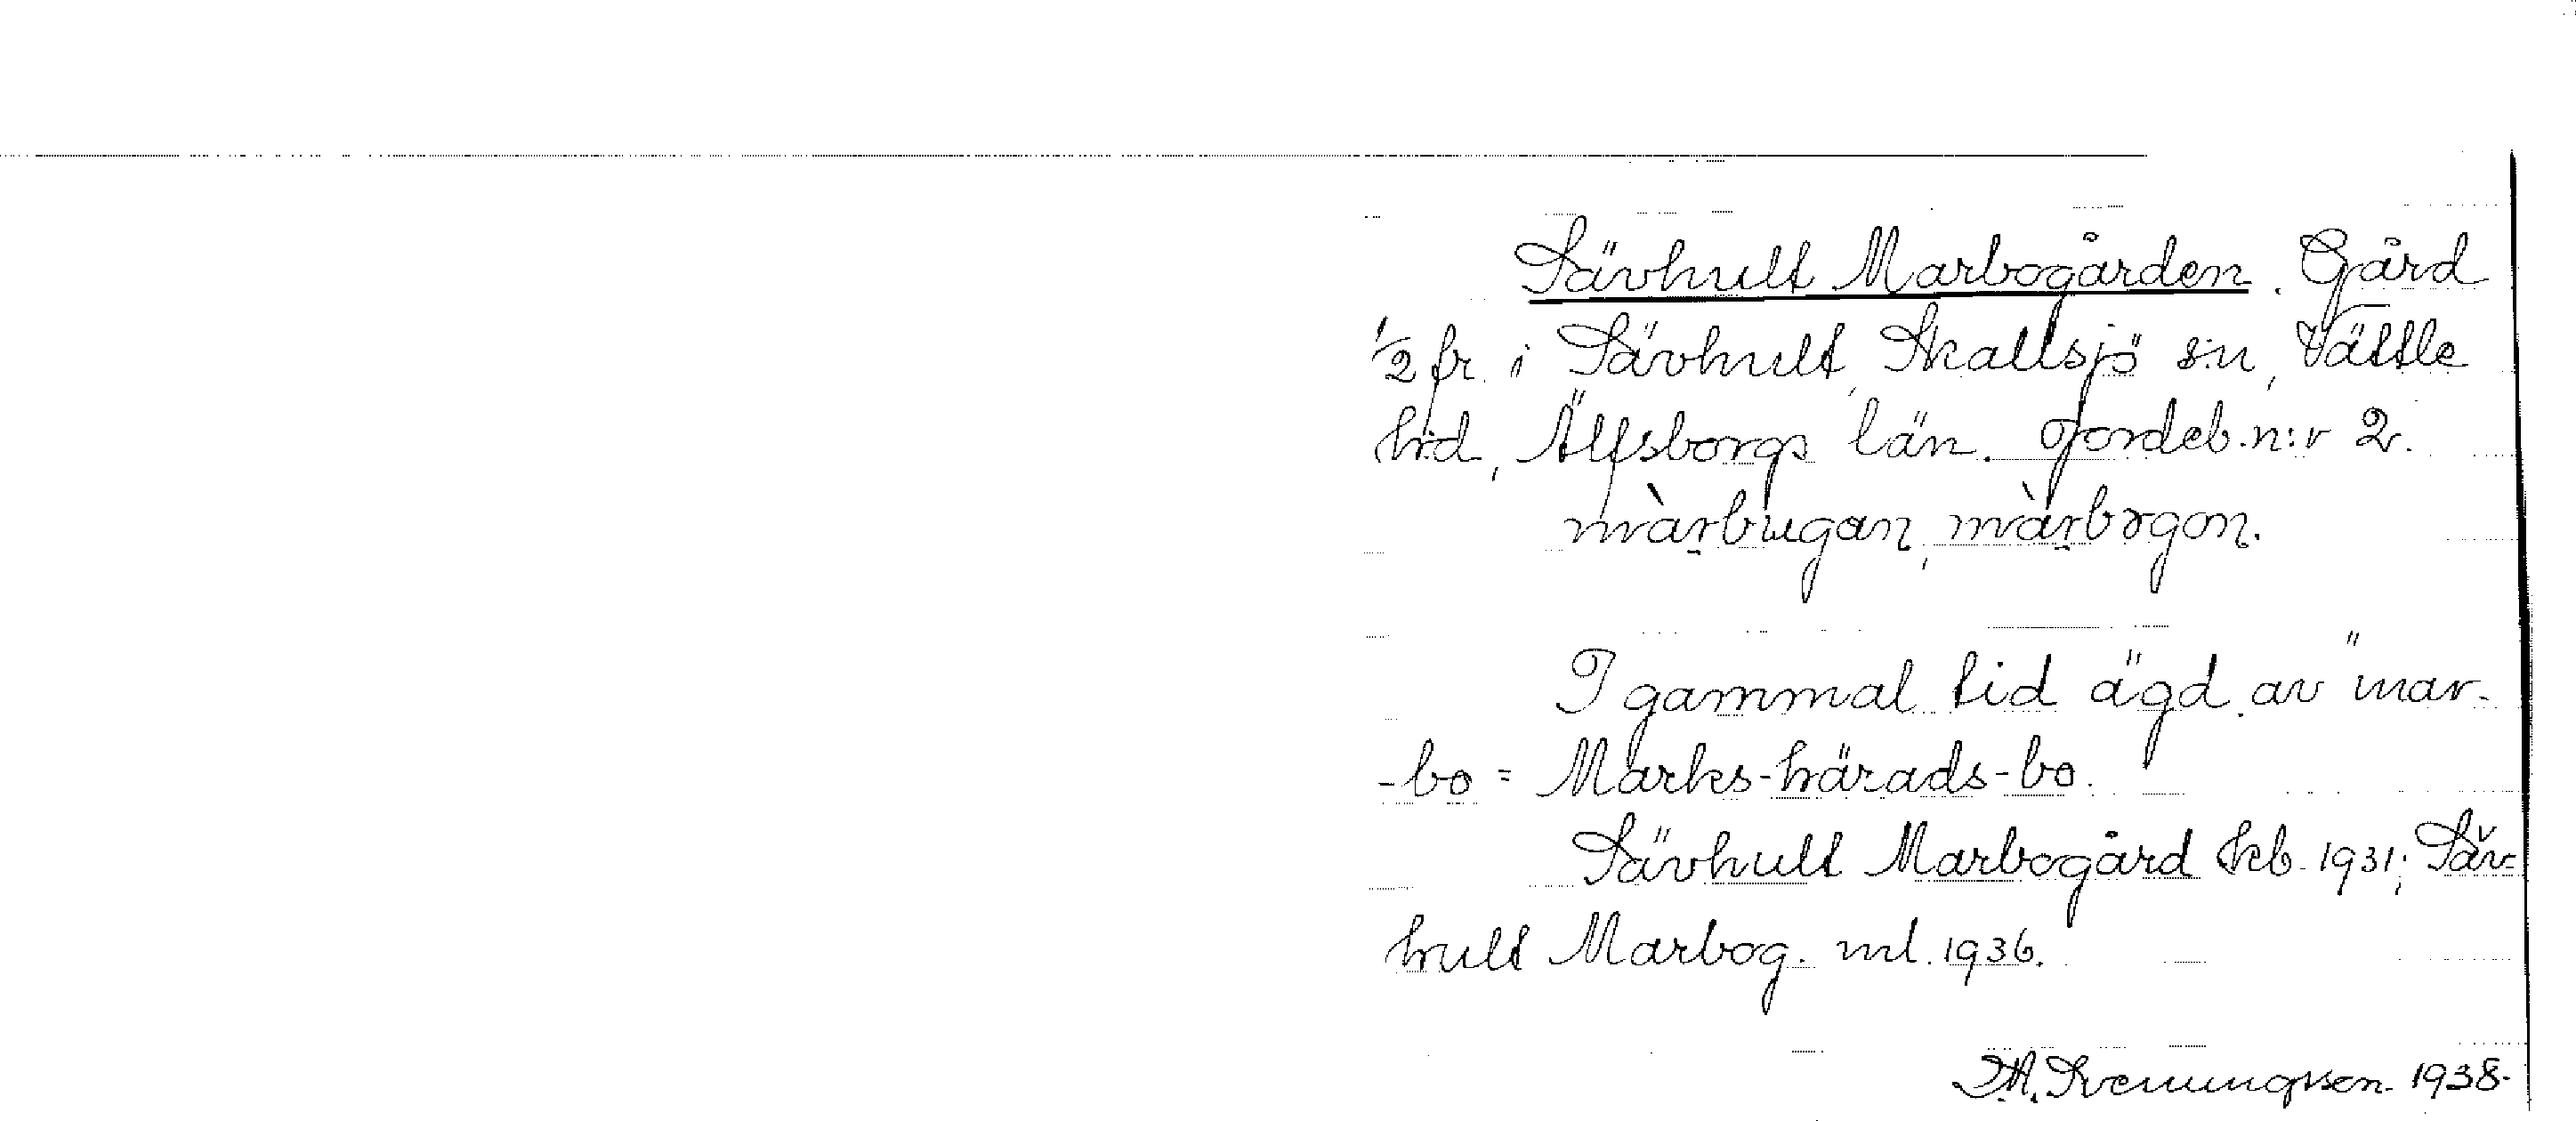 Sävhult Marbogården. Gård
1/2 fr. i Sävhult, Skallsjö s:n, Vättle
hrd, Älfsborgs län. Jordeb. n:r 2.
màrbugan, màrbɤgɑn.
I gammal tid ägd av "mar-
-bo = Marks-härads-bo.
Sävhult Marbogård Skb 1931; Säv-
hult Marbog. ml. 1936.
Svenungsson. 1938.